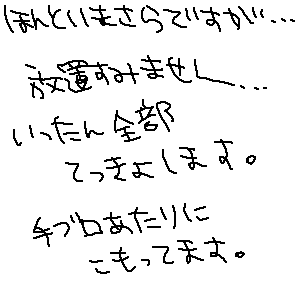 ほんといまさらですが…
放置すみませし…
いったん全部
てっきょします。
手ブロあたりに
こもってます。